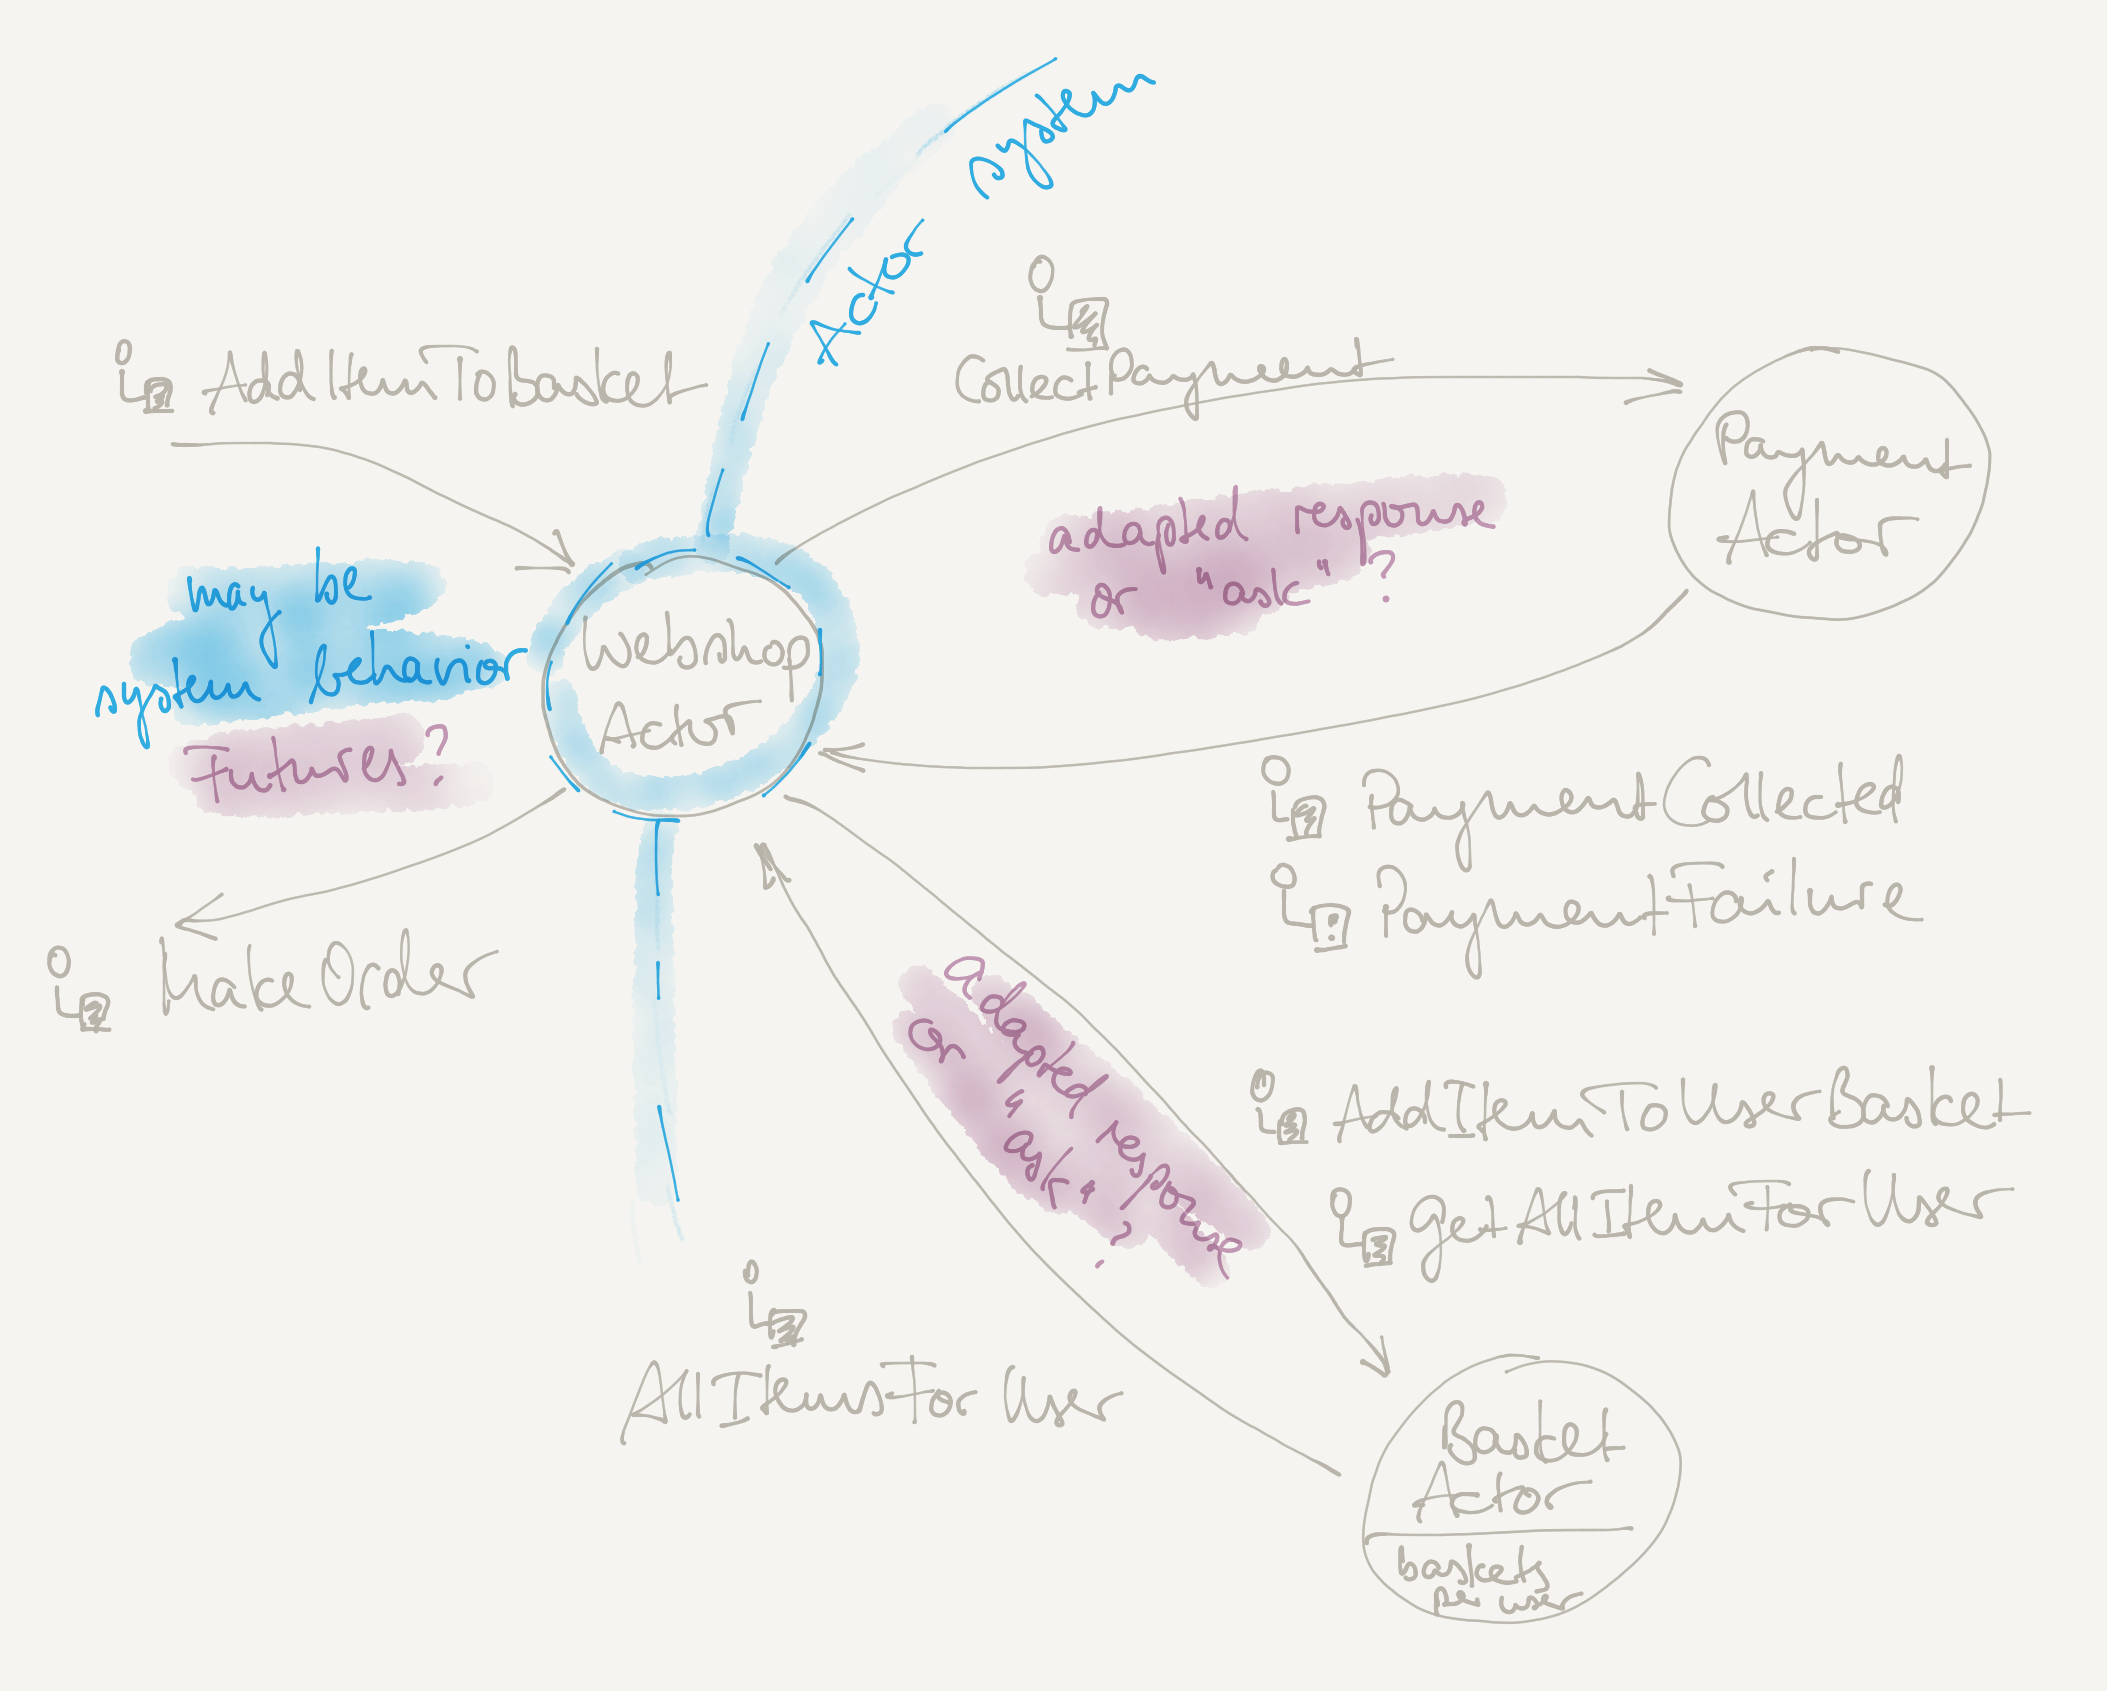 Actor system
AddItemToBasket
CollectPayment
Payment
Actor
adapted response
or "ask"?
may be
system behavior
Futures?
Webshop
Actor
PaymentCollected
PaymentFailure
MakeOrder
adapted response
or "ask"?
AddItemToUserBasket
getAllItemForUser
AllItemsForUser
Basket
Actor
baskets
per user